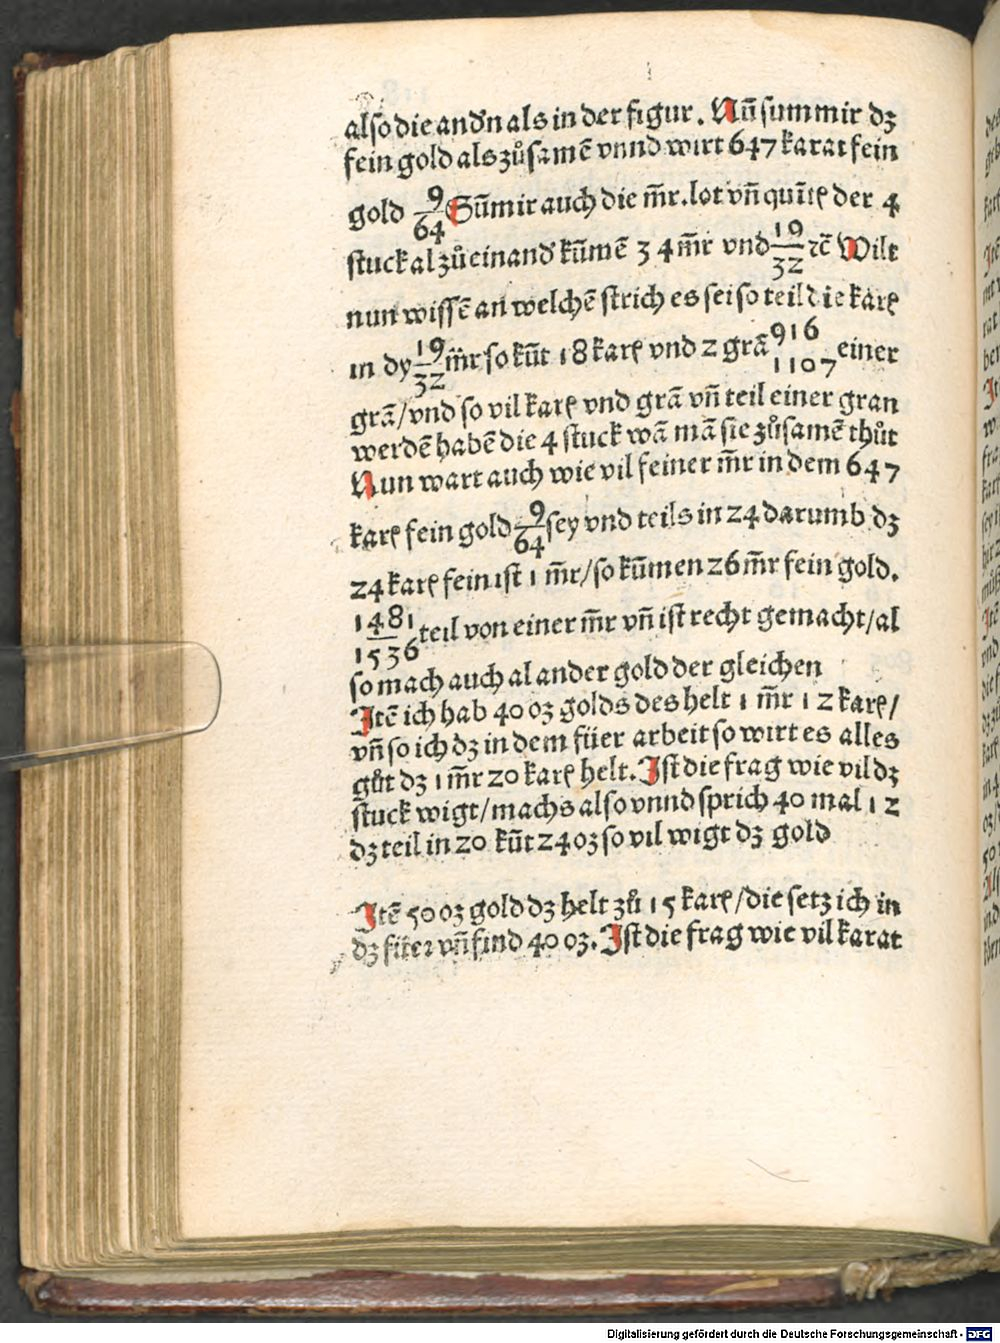 also die andn̄ als in der figur. Nū summir dʒ
fein gold als zůsamē vnnd wirt 647 karat fein
gold 9/64 Sūmir auch die m̄r. lot vn̄ quītꝭ der 4
stuck al zů einand' kūmē 34 m̄r vnd 19/32 ꝛc̄ Wilt
nun wissē an welchē strich es sei so teil die karꝭ
in dy 19/32 m̄r so kūt 18 karꝭ vnd 2 grā 916/1107 einer
grā/vnd so vil karꝭ vnd grā vn̄ teil einer gran
werdē habē die 4 stuck wā mā sie zůsamē thůt
Nun wart auch wie vil feiner m̄r in dem 647
karꝭ fein gold 9/64 sey vnd teils in 24 darumb dʒ
24 karꝭ fein ist 1 m̄r/so kūmen 26 m̄r fein gold.
1481/1536 teil von einer m̄r vn̄ ist recht gemacht/al
so mach auch al ander gold der gleichen
Itē ich hab 40 oʒ golds des helt 1 m̄r 12 karꝭ/
vn̄ so ich dʒ in dem füer arbeit so wirt es alles
gůt dʒ 1 m̄r 20 karꝭ helt. Ist die frag wie vil dʒ
stuck wigt/machs also vnnd sprich 40 mal 12
dʒ teil in 20 kūt 24 oʒ so vil wigt dʒ gold
Itē 50 oʒ gold dʒ helt zů 15 karꝭ/die setʒ ich in
dʒ füer vn̄ find 40 oʒ. Ist die frag wie vil karat
Digitalisierung gefördert durch die Deutsche Forschungsgemeinschaft - DFG